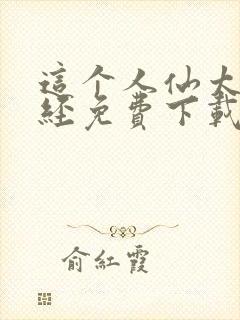 這个人仙太
經免費下載
俞紅霞